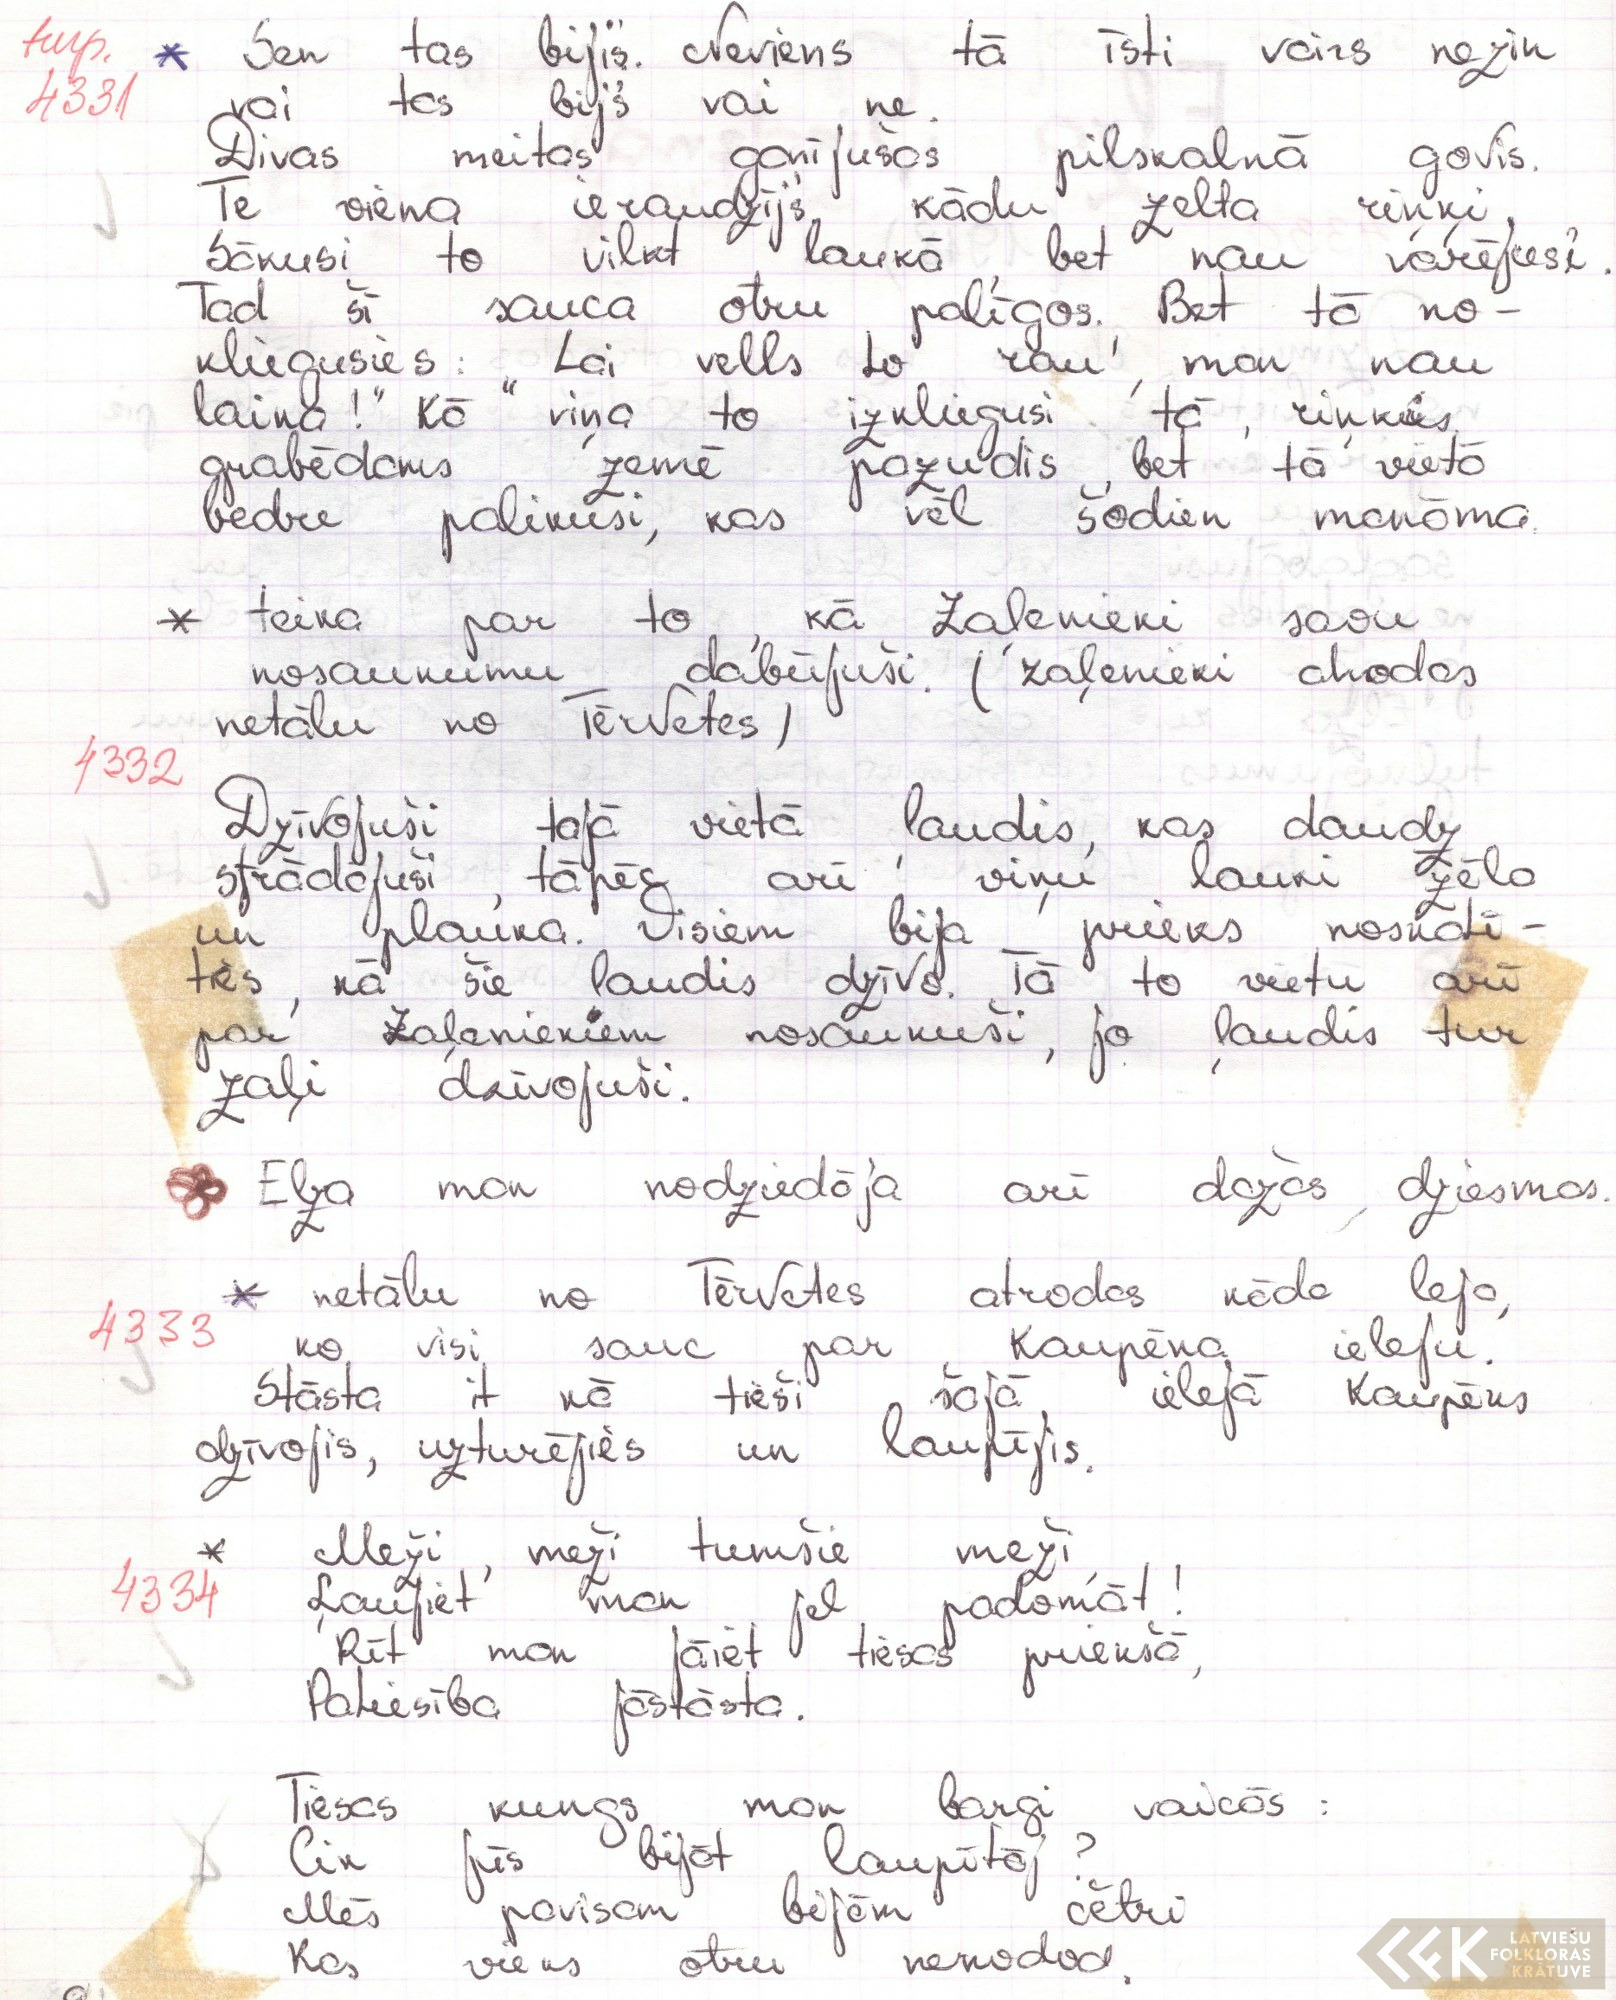 turp.
4331
* Sen tas bijis. Neviens tā īsti vairs nezin
vai tas bijš vai ne.
Divas meitas ganījušas pilskalnā govis.
Te viena ieraudzījs kādu zelta riņķi,
Sākusi to vilkt laukā, bet nau varējusi.
Tad šī sauca otru palīgos. Bet tā no-
kliegusies: "Lai vells to rau, man nau
laika!" Kā viņa to izkliegusi, tā riņķis
grabēdams zemē pazudis, bet tā vietā
bedre palikusi, kas vēl šodien manāma.
* teika par to, kā Zaļenieki savu
nosaukumu dabūjuši. (Zaļenieki atrodas
netālu no Tērvetes)
4332
Dzīvojuši tajā vietā ļaudis, kas daudz
strādājuši, tāpēc arī viņu lauki zēla
un plauka. Visiem bija prieks noskatī-
ties, kā šie ļaudis dzīvo. Tā to vietu arī
par Zaļeniekiem nosaukuši, jo ļaudis tur
zaļi dzīvojuši.
Elza man nodziedāja arī dažas dziesmas.
* netālu no Tērvetes atrodas kāda leja,
4333
ko visi sauc par Kaupēna ieleju.
Stāsta it kā tieši šajā ielejā Kaupēns
dzīvojis, uzturējies un laupījis.
* Meži, meži tumšie meži,
4334
Ļaujiet man jel padomāt!
Rīt man jāiet tiesas priekšā,
Patiesība jāstāsta.
Tiesas kungs man bargi vaicās:
Cik jūs bijāt laupītāj?
Mēs pavisam bijām četri
Kas viens otru nenodod.
LATVIEŠU
FOLKLORAS
KRĀTUVE